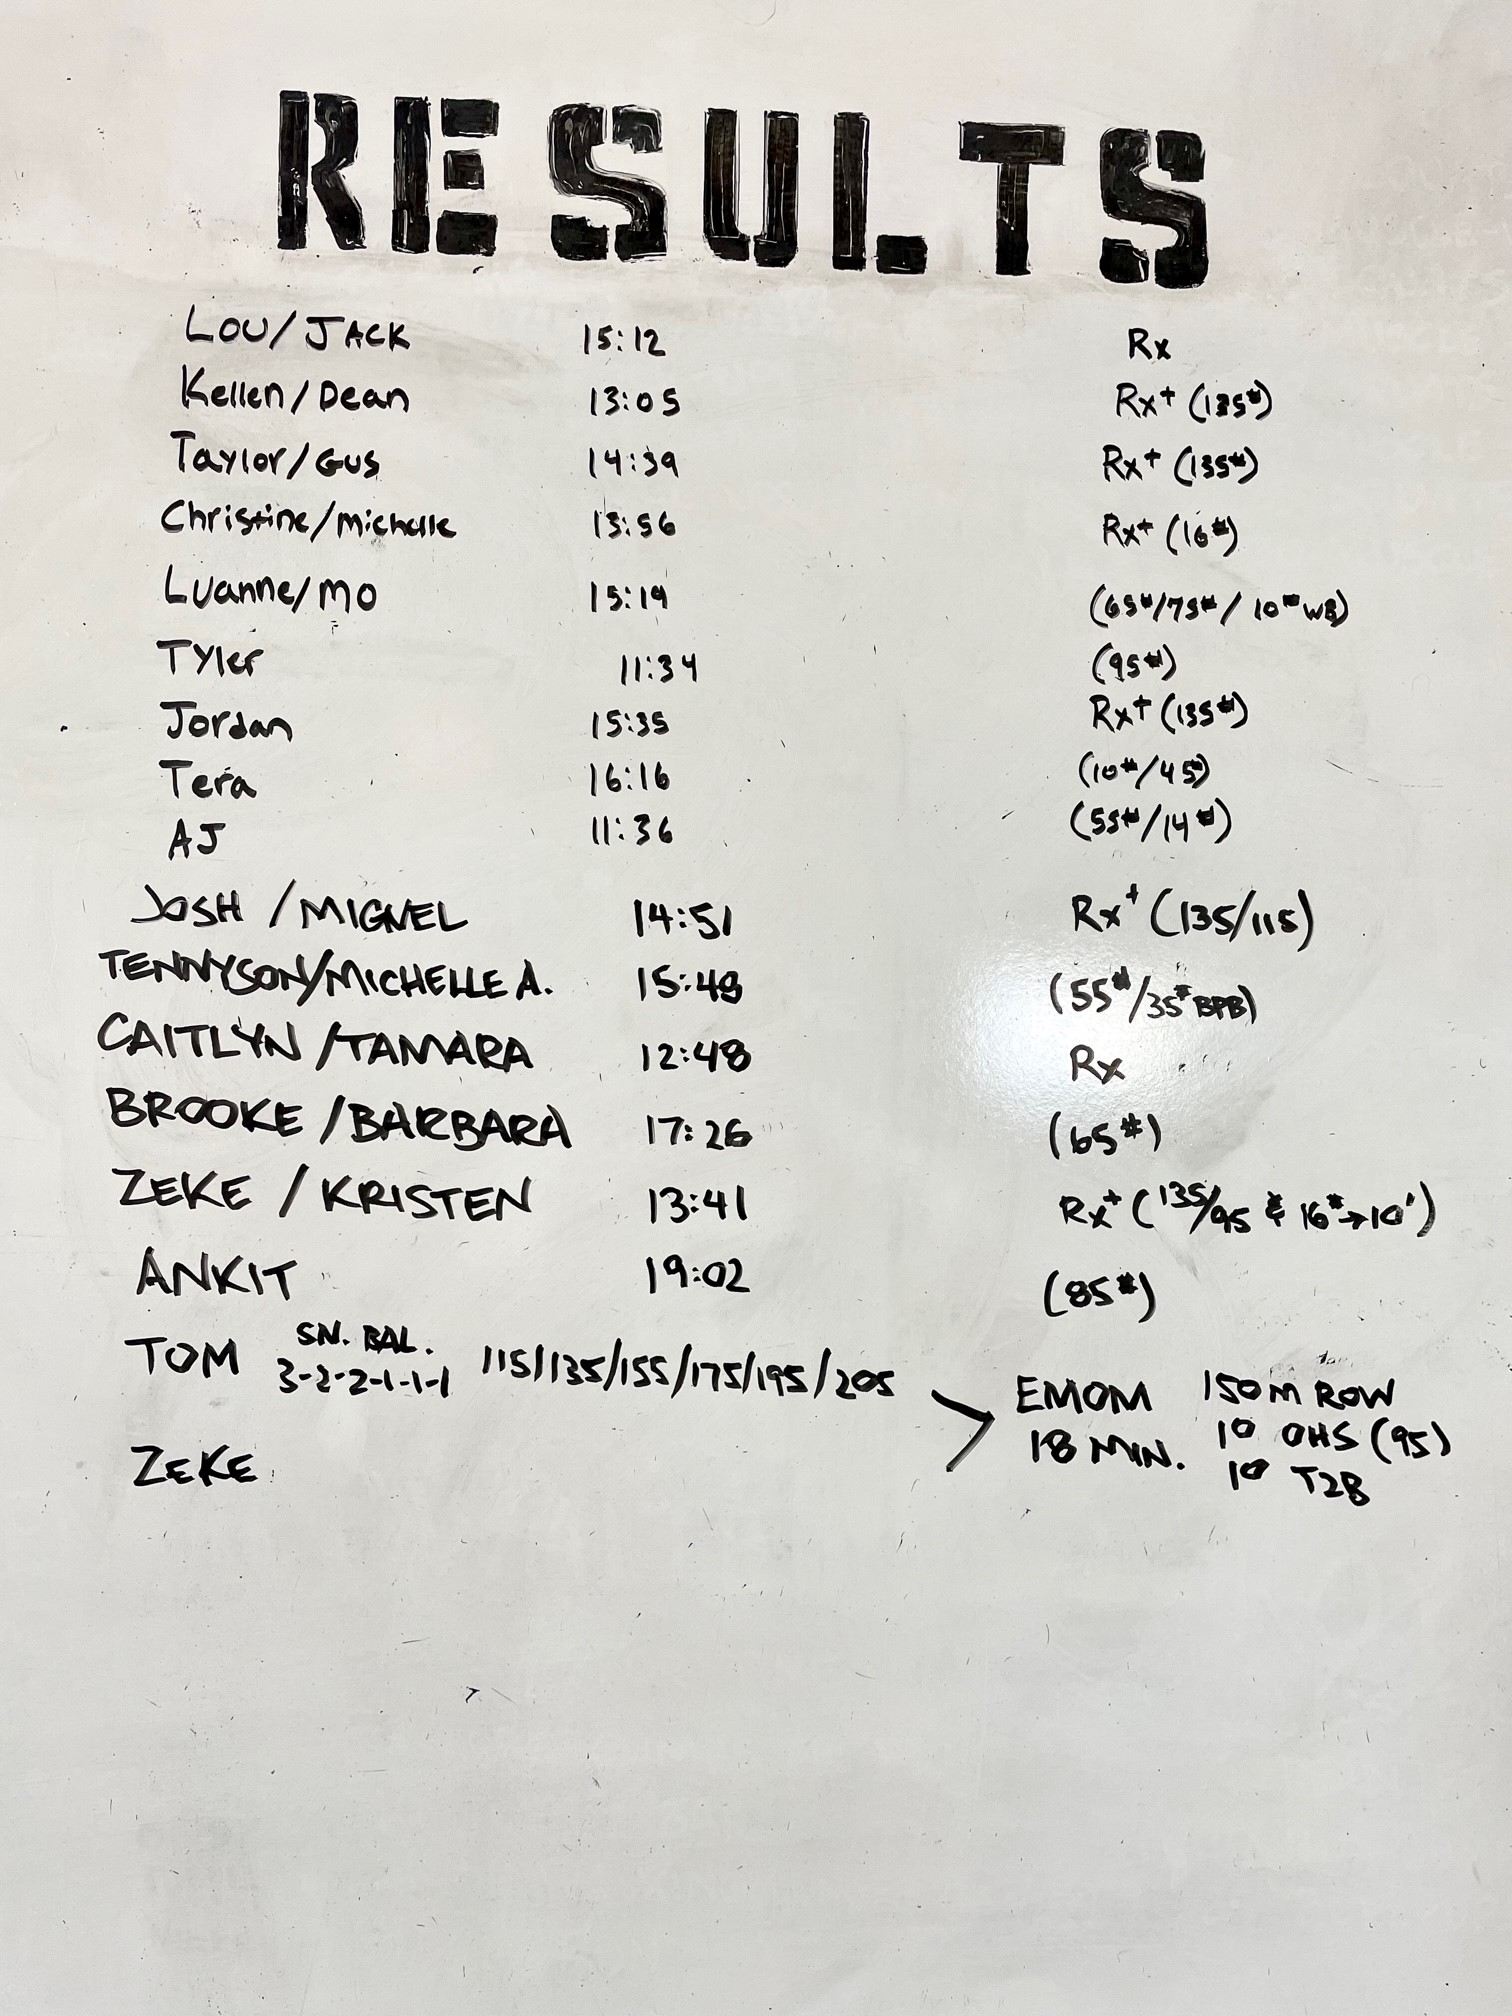 RESULTS
LOU/JACK 15:12 Rx
Kellen/Dean 13:05 Rx+ (135#)
Taylor/Gus 14:39 Rx+ (135#)
Christine/Michelle 13:56 Rx+ (16#)
Luanne/MO 15:19 (65#/75#/10# WB)
Tyler 11:34 (95#)
Jordan 15:35 Rx+ (135#)
Tera 16:16 (10#/45#)
AJ 11:36 (55#/14#)
JOSH / MIGUEL 14:51 Rx+ (135/115)
TENNYSON/MICHELLE A. 15:48 (55#/35# BPB)
CAITLYN / TAMARA 12:48 Rx
BROOKE / BARBARA 17:26 (65#)
ZEKE / KRISTEN 13:41 Rx+ (135/95 & 16#→10')
ANKIT 19:02 (85#)
TOM SN. BAL. 3-2-2-1-1-1 115/135/155/175/195/205
ZEKE
EMOM 18 MIN.
150m ROW
10 OHS (95)
10 T2B